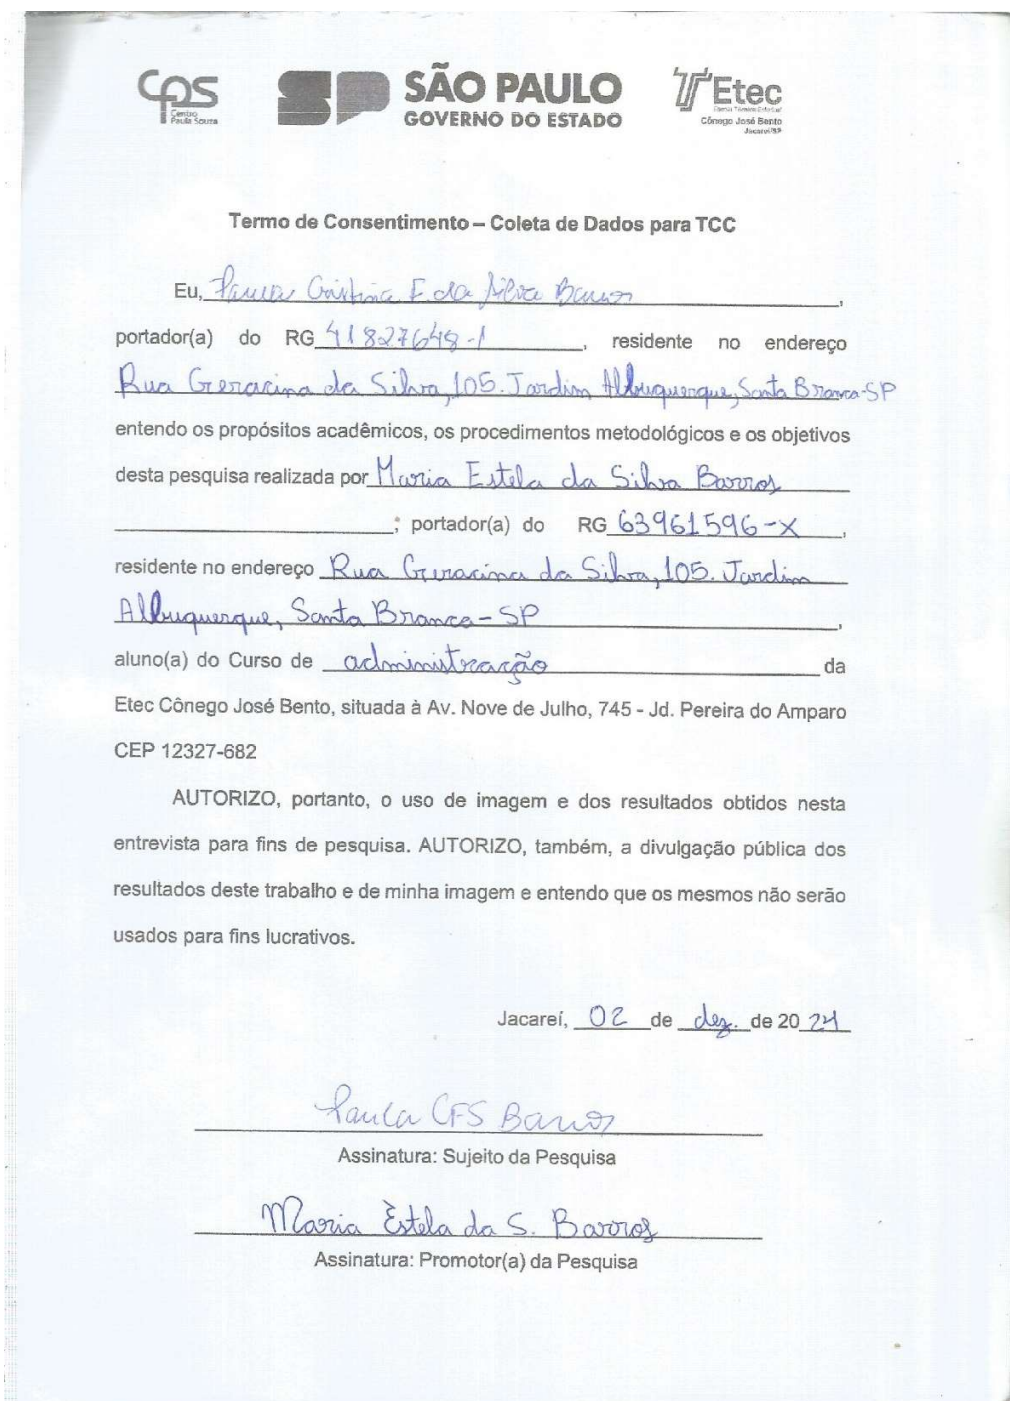 CPS
Centro
Paula Souza
SP SÃO PAULO
GOVERNO DO ESTADO
Etec
Escola Técnica Estadual
Cônego José Bento
Jacareí/SP
Termo de Consentimento – Coleta de Dados para TCC
Eu, Paula Cristina F. da Silva Barros,
portador(a) do RG 41827648-1, residente no endereço
Rua Geracina da Silva, 105. Jardim Albuquerque, Santa Branca-SP
entendo os propósitos acadêmicos, os procedimentos metodológicos e os objetivos
desta pesquisa realizada por Maria Estela da Silva Barros
; portador(a) do RG 63961596-X,
residente no endereço Rua Geracina da Silva, 105. Jardim
Albuquerque, Santa Branca-SP,
aluno(a) do Curso de administração da
Etec Cônego José Bento, situada à Av. Nove de Julho, 745 - Jd. Pereira do Amparo
CEP 12327-682
AUTORIZO, portanto, o uso de imagem e dos resultados obtidos nesta
entrevista para fins de pesquisa. AUTORIZO, também, a divulgação pública dos
resultados deste trabalho e de minha imagem e entendo que os mesmos não serão
usados para fins lucrativos.
Jacareí, 02 de dez. de 2024
Paula CFS Barros
Assinatura: Sujeito da Pesquisa
Maria Estela da S. Barros
Assinatura: Promotor(a) da Pesquisa